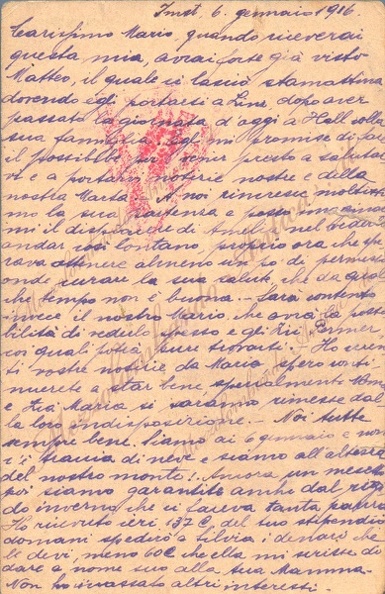 Imst, 6. gennaio 1916.
Carissimo Mario, quando riceverai
questa mia, avrai forse già visto
Matteo, il quale ci lasciò stamattina
dovendo egli portarsi a Linz, dopo aver
passato la giornata d'oggi a Hall colla
sua famiglia. Egli mi promise di fare
il possibile per venir presto a saluta
vi e a portarvi notizie nostre e della
nostra Marta. A noi rincresce moltissi
mo la sua partenza e posso
mi il dispiacere di nel vederlo
andar così lontano proprio ora che spe
rava ottenere almeno un po' di permesso
onde curare la sua salute che da qual
che tempo non è buona. - Sarà contento
invece il nostro Mario, che avrà la possi
bilità di vederlo spesso e gli Zii
coi quali potrà trovarsi. - Ho
ti vostre notizie da Maria e spero conti
nuerete a star bene specialmente
e Zia Maria si saranno rimesse dal
la loro indisposizione. - Noi tutte
sempre bene. Siamo ai 6 gennaio e non
c'è traccia di neve e siamo all'altezza
del nostro monte! Ancora un mesetto
poi siamo garantite anche dal rigi
do inverno che ci faceva tanta paura
Ho ricevuto ieri 137 C. del tuo stipendio
domani spedirò a Silvia i denari che
le devi, meno 60 C che ella mi scrisse di
dare a nome suo alla tua Mamma.
Non ho incassato altri interessi.